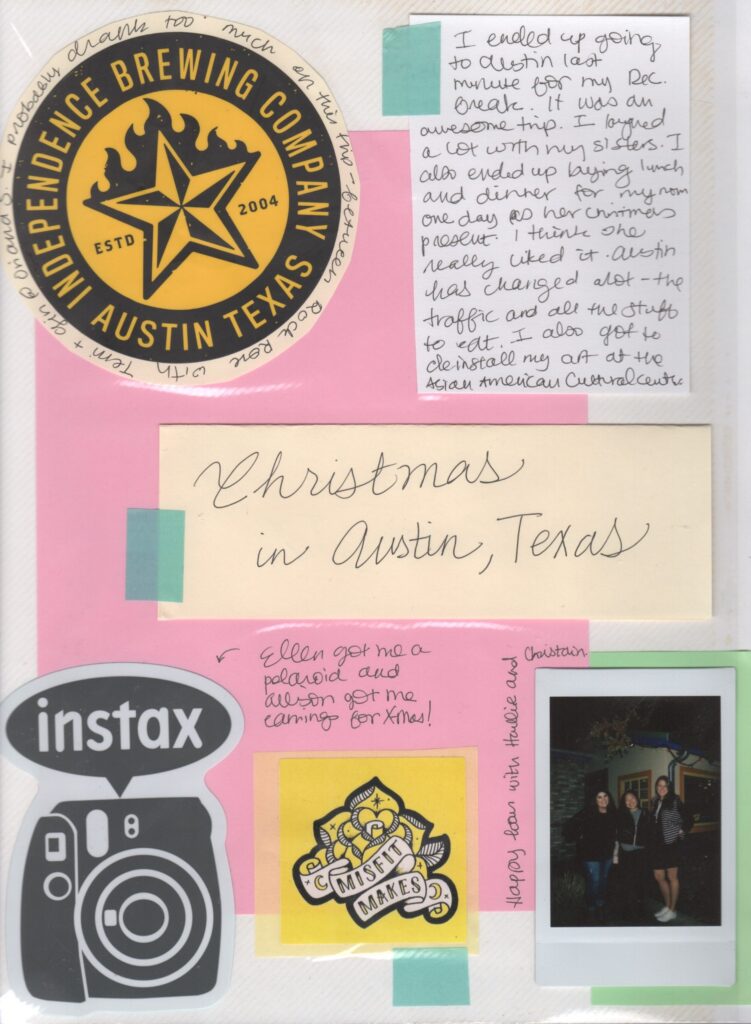 I probably drank too much on this trip - between Rock Rose with Terri + gin @ Oriana S.
INDEPENDENCE BREWING COMPANY
ESTD 2004
AUSTIN TEXAS
I ended up going
to Austin last
minute for my Dec.
Break. It was an
awesome trip. I layed
a lot with my sisters. I
also ended up buying lunch
and dinner for my mom
one day as her christmas
present. I think she
really liked it. Austin
has changed alot - the
traffic and all the stuff
to eat. I also got to
deinstall my art at the
Asian American Cultural Centre.
Christmas
in Austin, Texas
Ellen got me a
polaroid and
Alison got me
earrings for Xmas!
instax
MISFIT
MAKES
Happy hour with Hallie and
Christain.